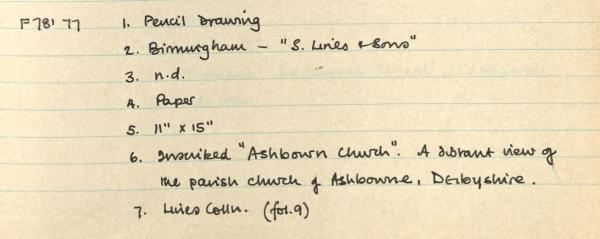 F78' 77 1. Pencil Drawing
2. Birmingham - "S. Lines & Sons"
3. n.d.
4. Paper
5. 11" x 15"
6. Inscribed "Ashbourn Church". A distant view of
the parish church of Ashbourne, Derbyshire.
7. Lines Colln. (fol. 9)